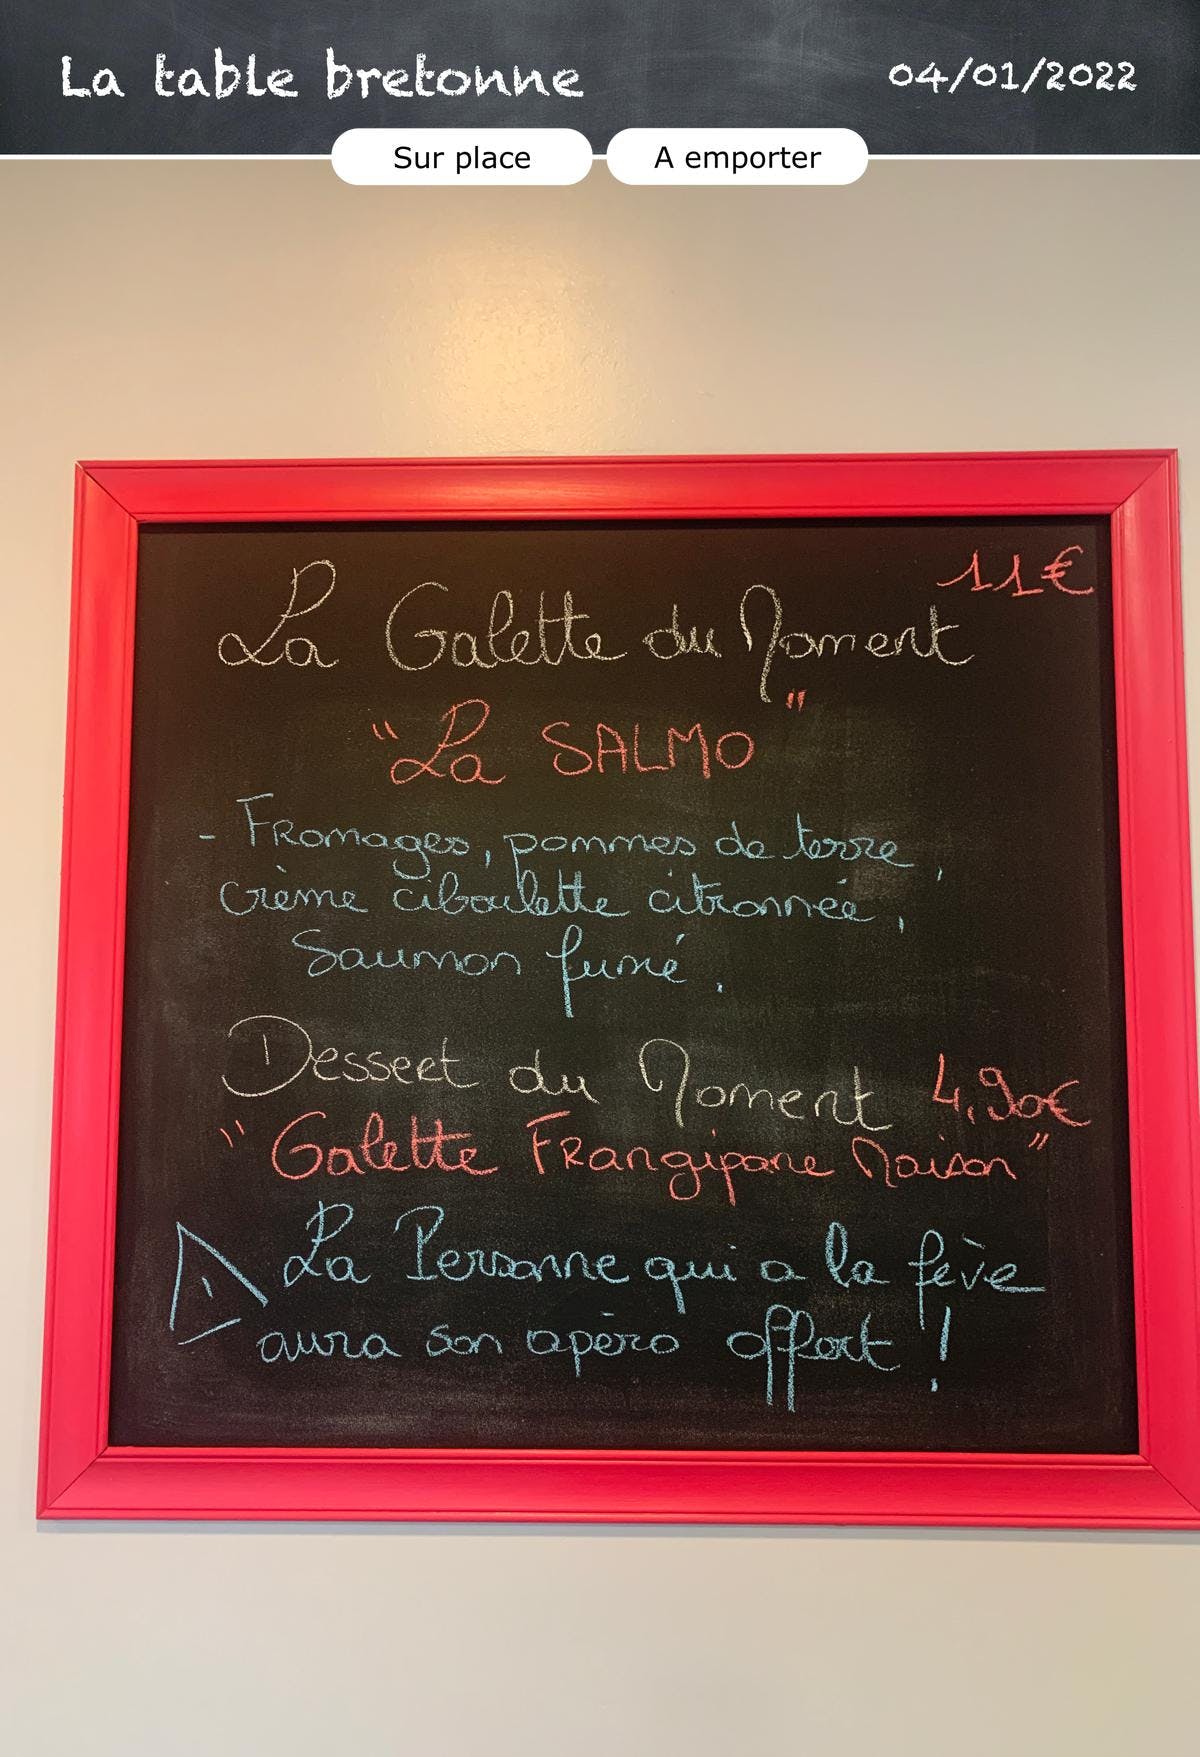 La table bretonne
04/01/2022
Sur place
A emporter
11€
La Galette du Moment
"La SALMO"
- Fromages, pommes de terre,
crème ciboulette citronnée,
Saumon fumé.
Dessert du Moment 4,90€
"Galette Frangipane Maison"
La Personne qui a la fève
aura son apéro offert !